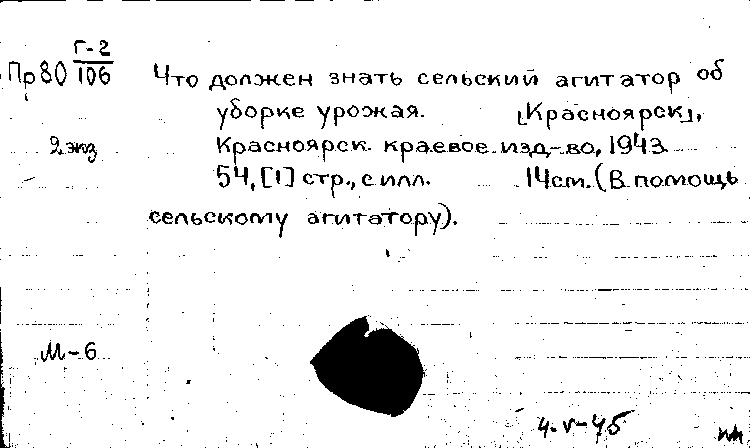 Г-2
Пр80 106 Что должен знать сельский агитатор об
уборке урожая. [Красноярск],
2 экз Красноярск. краевое изд-во, 1943.
54, [1] стр., с илл. 14 см. (В помощь
сельскому агитатору).
М-6
4-V-45